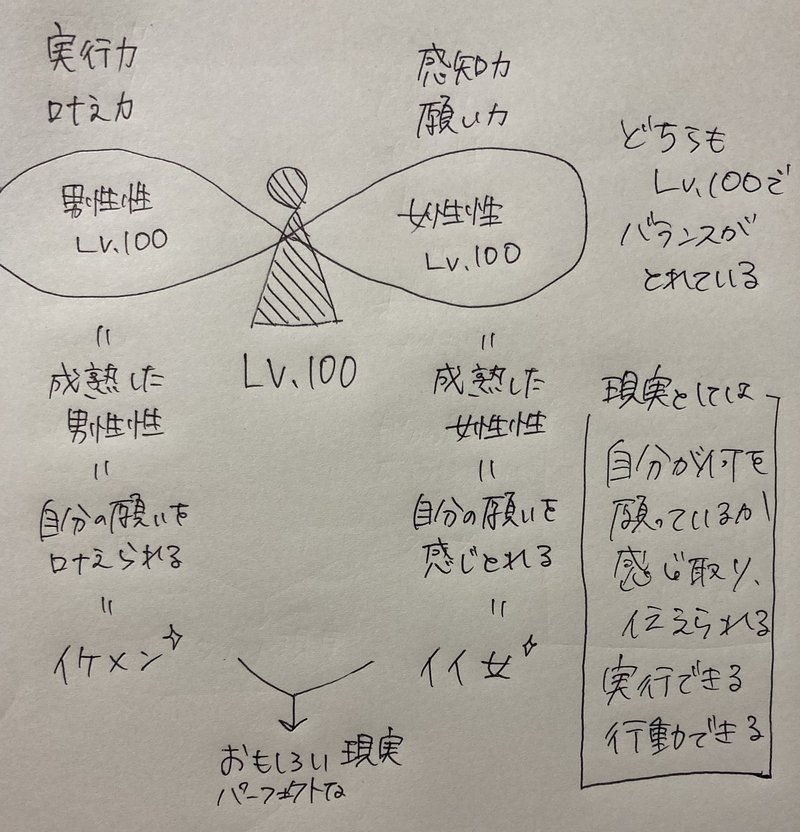 実行力
叶え力
男性性
Lv.100
=
成熟した
男性性
=
自分の願いを
叶えられる
=
イケメン
Lv.100
感知力
願い力
女性性
Lv.100
=
成熟した
女性性
=
自分の願いを
感じとれる
=
イイ女
おもしろい現実
パーフェクトな
どちらも
Lv.100で
バランスが
とれている
現実としては
自分が何を
願っているか
感じ取り、
伝えられる
実行できる
行動できる